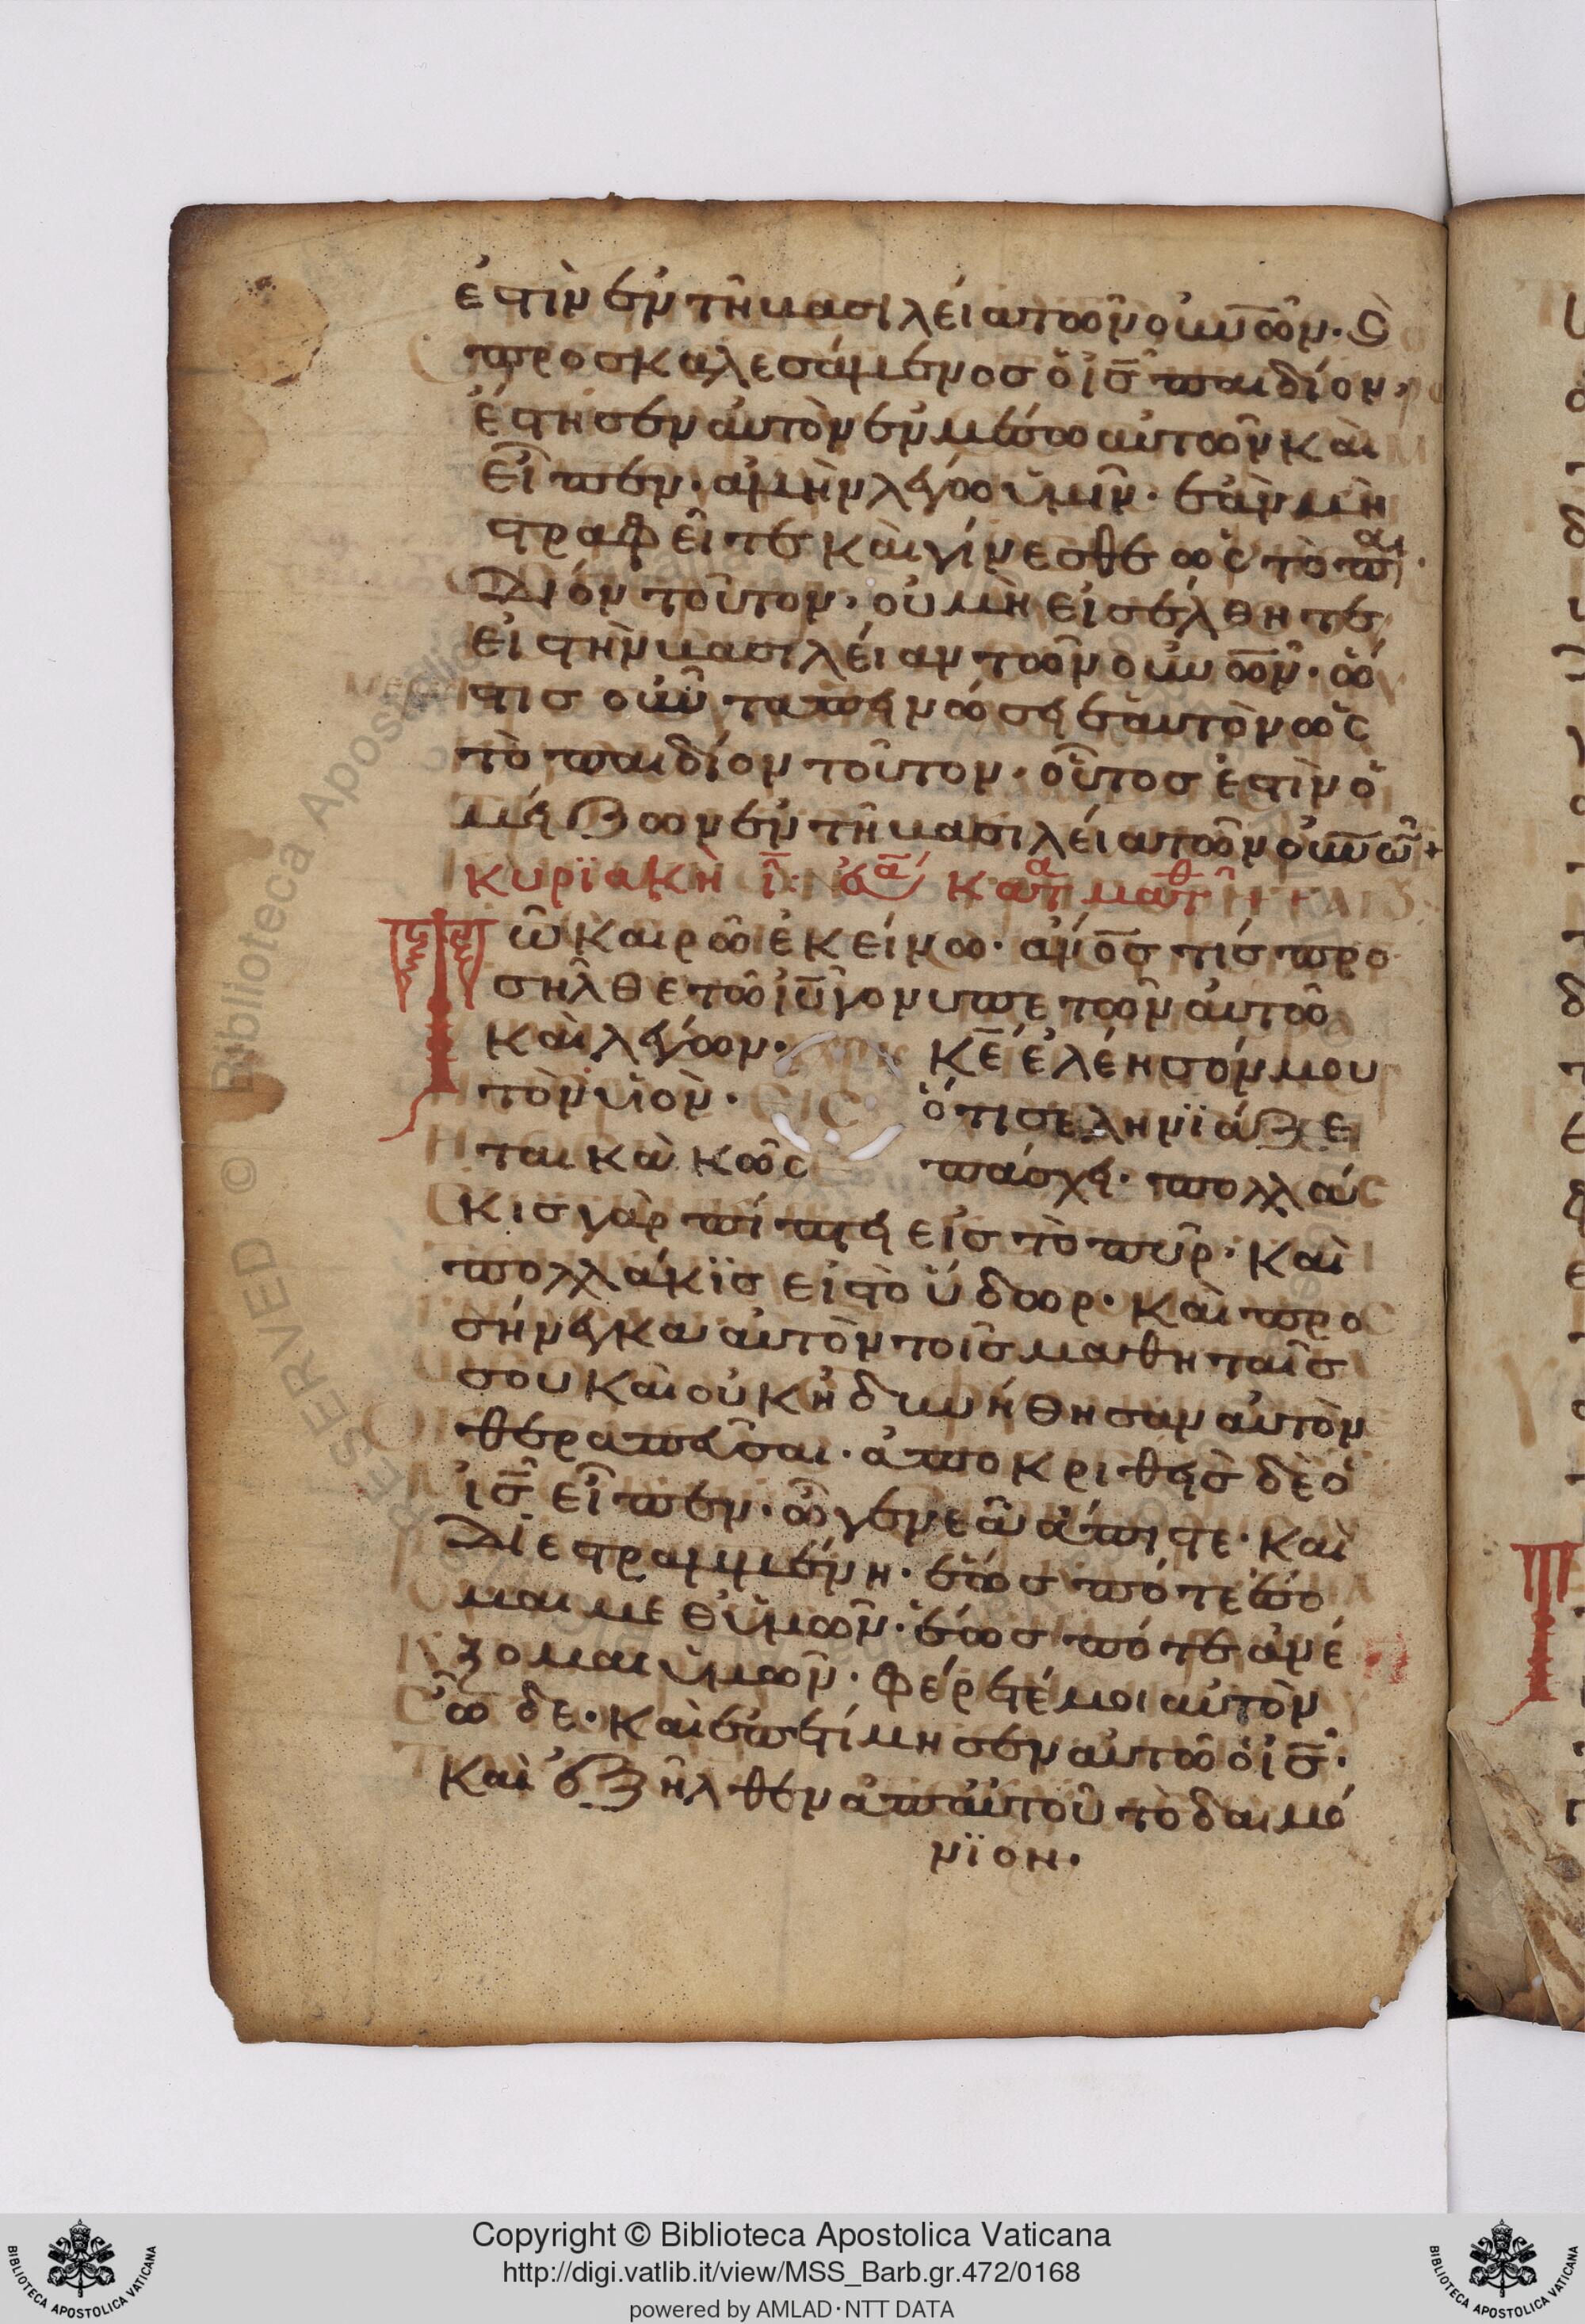 ἐστὶν ἐν τῆ βασιλεία τῶν οὐνῶν· ϗ
προσκαλεσάμενος ὁ ἰς̅ παιδίον,
ἔστησεν αὐτὸν ἐν μέσω αὐτῶν καὶ
εἶπεν· ἀμὴν λέγω ὑμῖν· ἐὰν μὴ
στραφεῖτε καὶ γίνεσθε ὡς τὸ παι
δίον τοῦτον· οὐ μὴ εἰσέλθητε
εἰ στὴν βασιλείαν τῶν οὐνῶν· ὥ
στις οὖν ταπεινώσει ἑαυτὸν ὡς
τὸ παιδίον τοῦτον· οὗτος ἐστὶν ὁ
μείζων ἐν τῆ βασιλεία τῶν οὐνῶ+
κυρϊακὴ ι̅· ἐυα̅ κατ ματθ
Τῶ καιρῶ ἐκείνω· ἀνός τίς προ
σῆλθε τῶ ἰυ̅ γονυπετῶν αὐτῶ
καὶ λέγων· κε̅ ἐλέησόν μου
τὸν υἱὸν· ὅτι σεληνϊάζε
ται καὶ κακῶς πάσχει· πολλά
κις γὰρ πίπτει εἰς τὸ πῦρ· καὶ
πολλάκϊς εἰ στὸ ὕδωρ· καὶ προ
σήνεγκα αὐτὸν τοῖς μαθηταῖς
σου καὶ οὐκ ἠδυνήθησαν αὐτὸν
θεραπεῦσαι· ἀποκριθεὶς δὲ ὁ
ἰς̅ εἶπεν· ὦ γενεὰ ἄπιστε· καὶ
διεστραμμένη· ἕως πότε ἔσο
μαι μεθ ὑμῶν· ἕως πότε ἀνέ
ξομαι ὑμῶν· φέρετέ μοι αὐτὸν
ὧδε· καὶ ἐπετίμησεν αὐτῶ ὁ ἰς̅·
καὶ ἐξῆλθεν ἀπ αὐτοῦ τὸ δαιμό
νϊον·
Copyright © Biblioteca Apostolica Vaticana
http://digi.vatlib.it/view/MSS_Barb.gr.472/0168
powered by AMLAD·NTT DATA
BIBLIOTECA APOSTOLICA VATICANA
BIBLIOTECA APOSTOLICA VATICANA